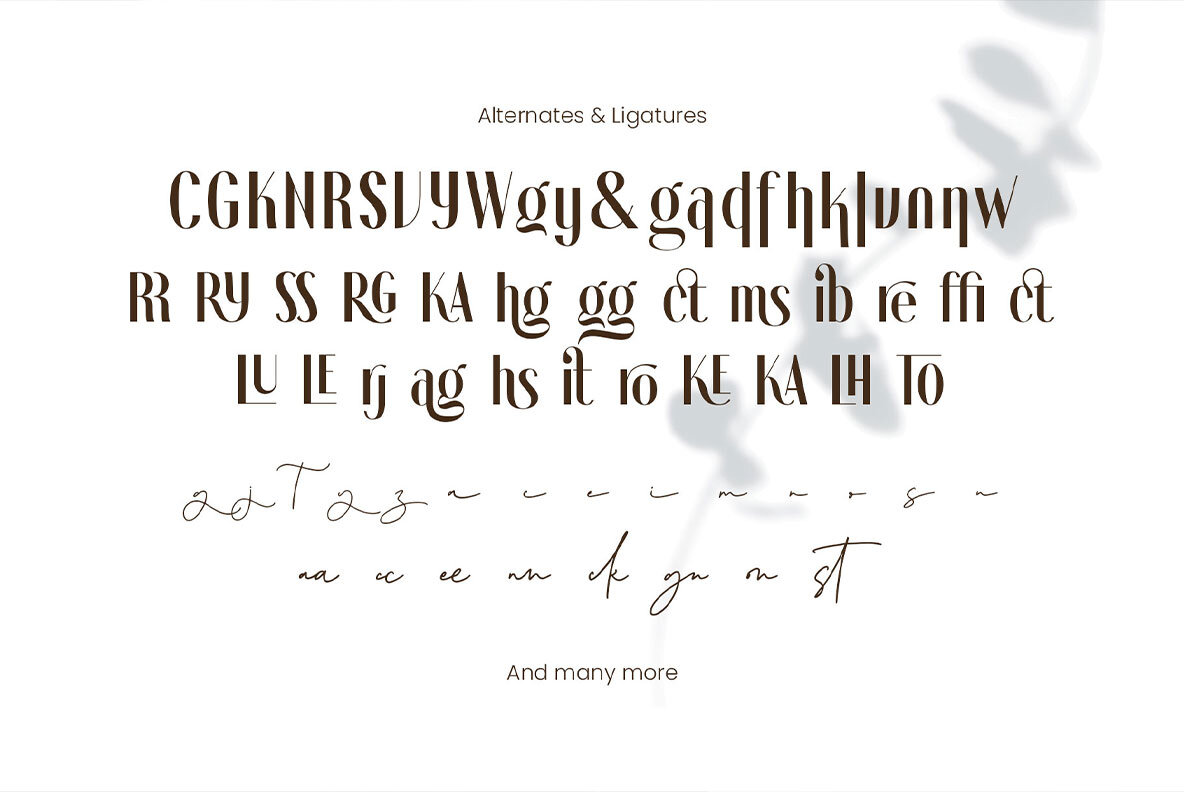 Alternates & Ligatures
CGKNRSVYWgy&gqdfhklvnηw
RR RY SS RG KA hg gg ct ms ib re ffi ct
LU LE rj ag hs it ro KE KA LH TO
g j T y z a c e i m n r s n
aa cc ee nn ck gn on st
And many more